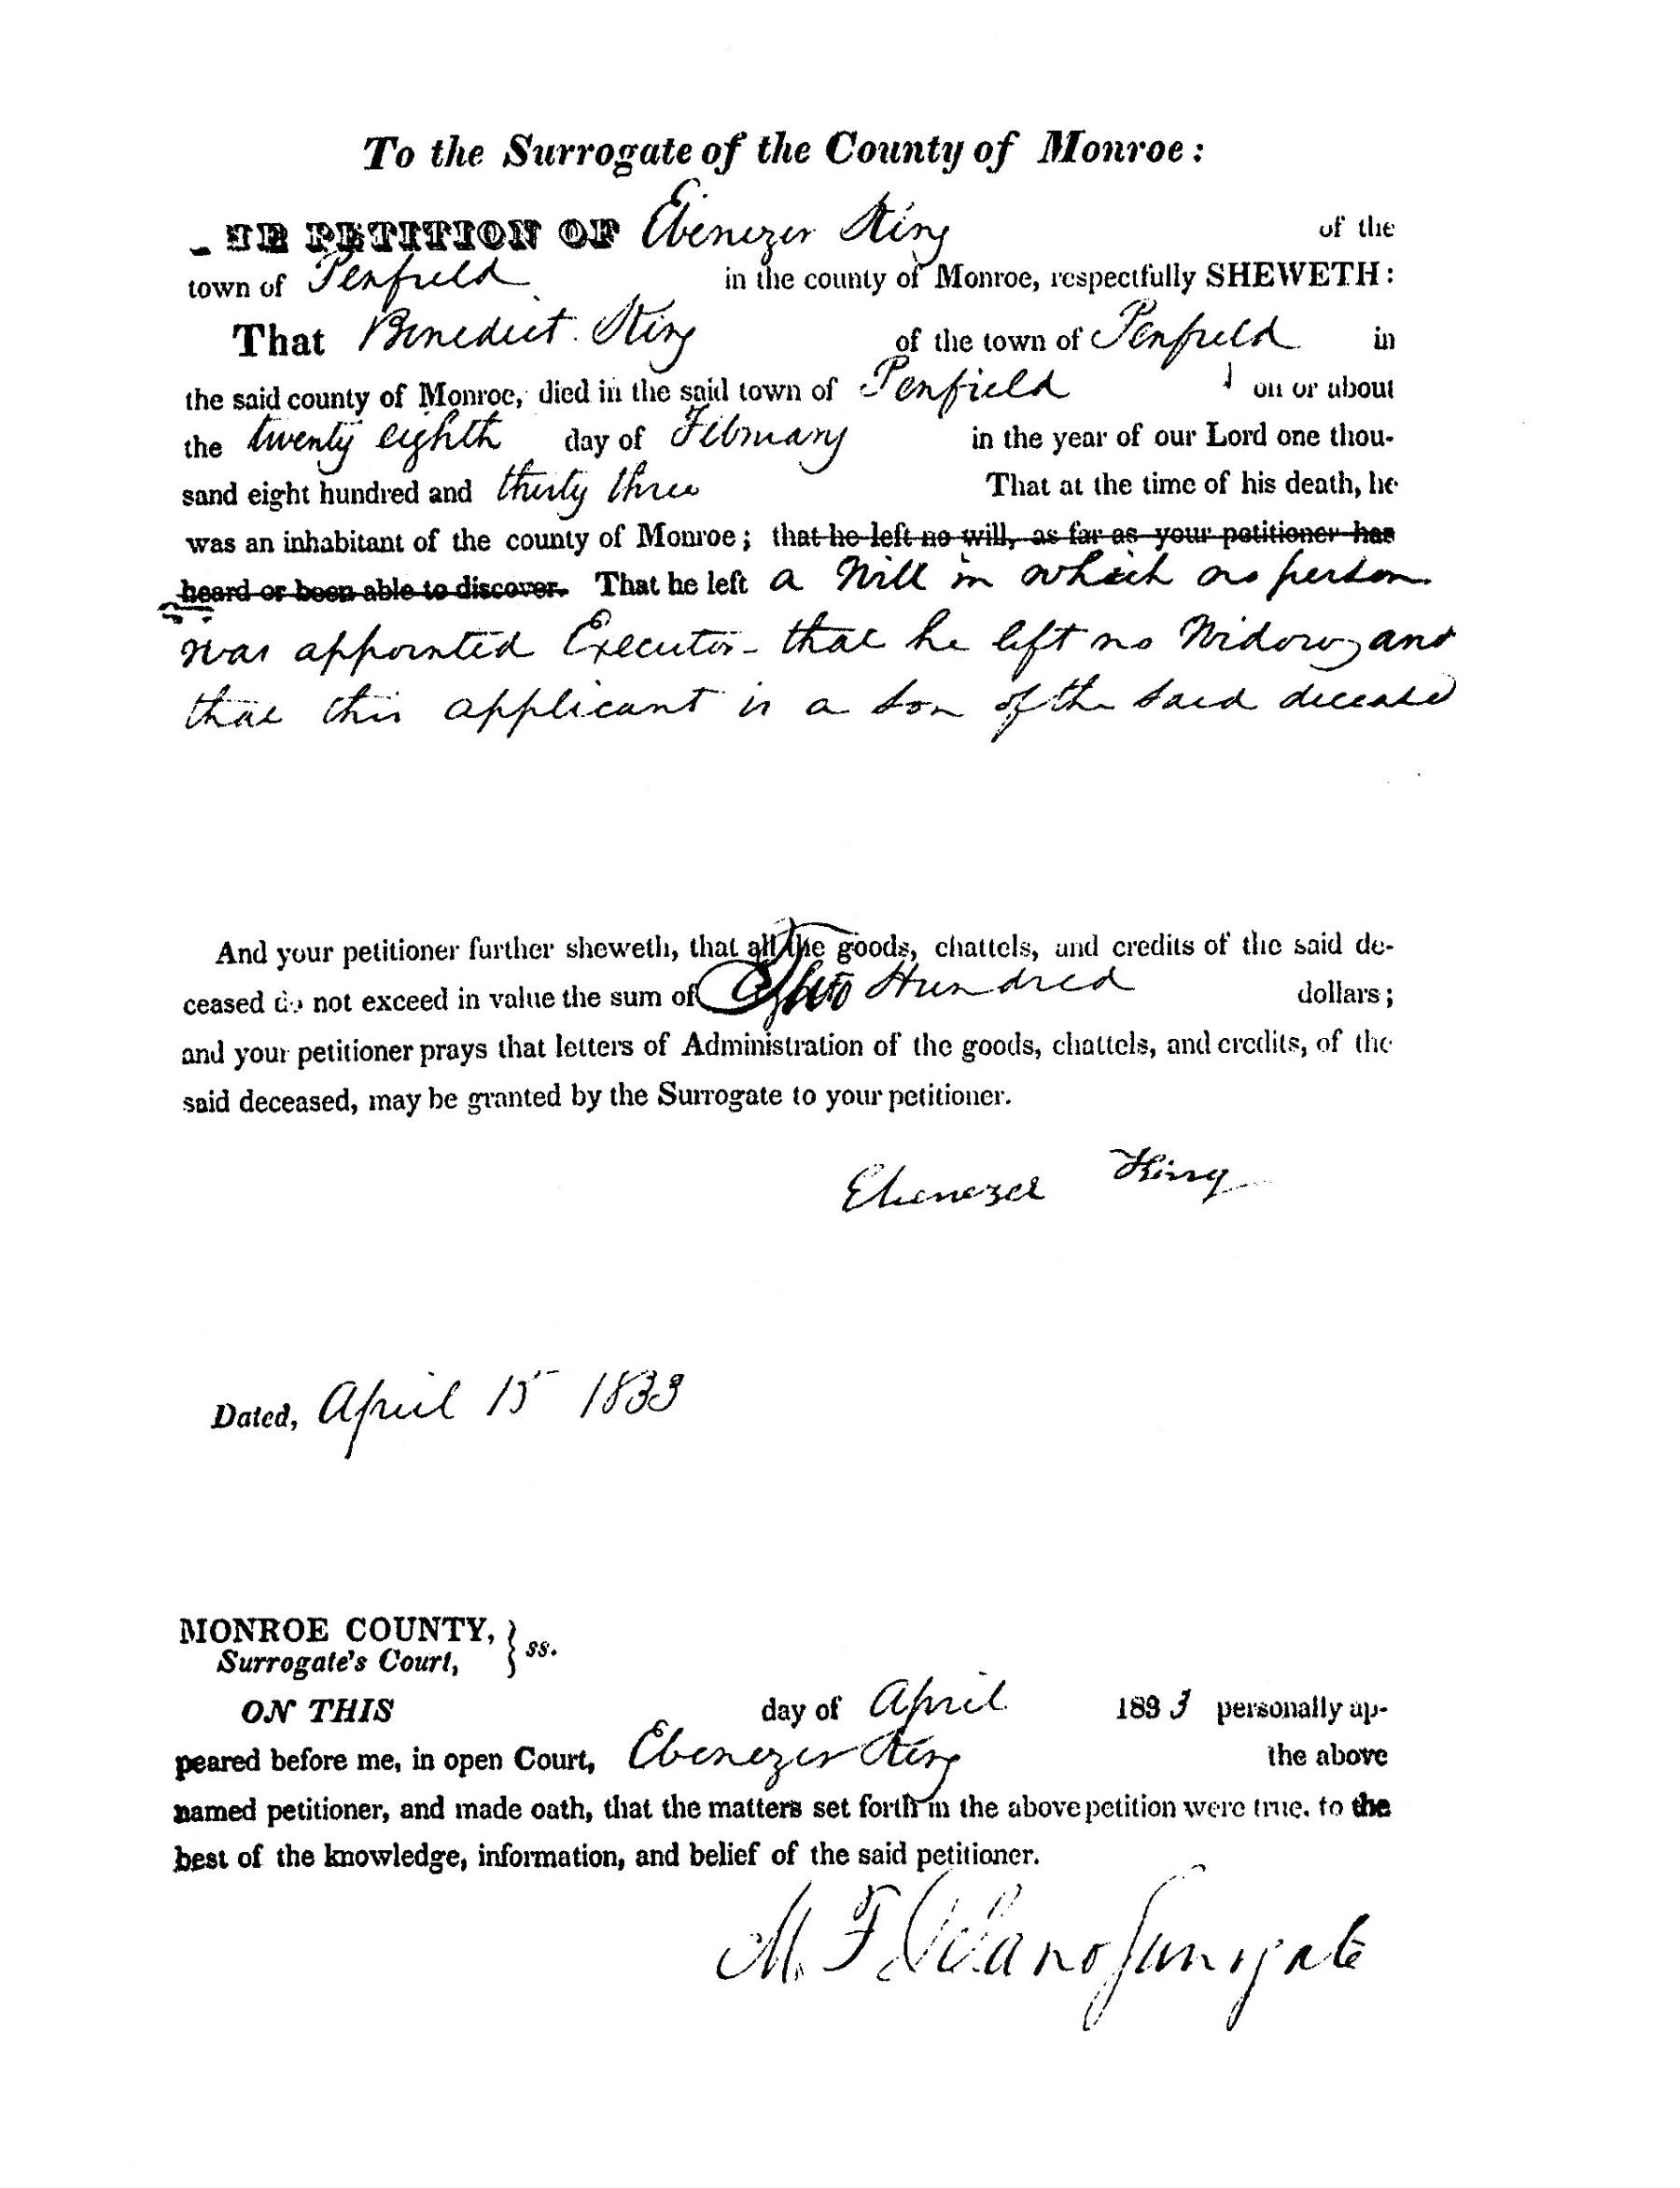 To the Surrogate of the County of Monroe:
HE PETITION OF Ebenezer King of the
town of Penfield in the county of Monroe, respectfully SHEWETH:
That Benedict King of the town of Penfield in
the said county of Monroe, died in the said town of Penfield on or about
the twenty eighth day of February in the year of our Lord one thou-
sand eight hundred and thirty three That at the time of his death, he
was an inhabitant of the county of Monroe; that he left no will, as far as your petitioner has
heard or been able to discover. That he left a Will in which no person
was appointed Executor - that he left no Widow, and
that this applicant is a son of the said deceased
And your petitioner further sheweth, that all the goods, chattels, and credits of the said de-
ceased do not exceed in value the sum of Hundred dollars;
and your petitioner prays that letters of Administration of the goods, chattels, and credits, of the
said deceased, may be granted by the Surrogate to your petitioner.
Ebenezer King
Dated, April 15 1833
MONROE COUNTY, } ss.
Surrogate's Court,
ON THIS day of April 1833 personally ap-
peared before me, in open Court, Ebenezer King the above
named petitioner, and made oath, that the matters set forth in the above petition were true, to the
best of the knowledge, information, and belief of the said petitioner.
M. F. Delano Surrogate